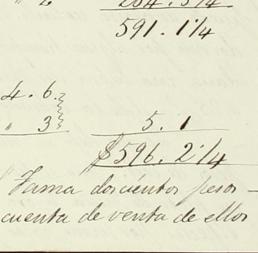 204. 3/4
591. 1 1/4
4. 6.
" 3 5. 1
$596. 2 1/4
Fama doscientos pesos —
cuenta de venta de ellos